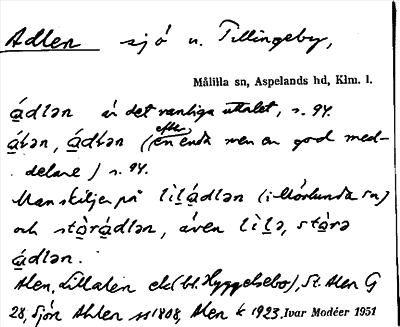 Adlen sjö n. Tillingeby,
Målilla sn, Aspelands hd, Klm. l.
á̱dlən är det vanliga uttalet, s. 94.
á̱lən, á̱dlən (efter en enda men en god med-
delare) s. 94.
Man skiljer på lìlá̱dlən (i Mörlunda sn)
och stò̱rá̱dlən, även lìl̀ə, stò̱rə
á̱dlən.
Alen, Lillalen ek (bl. Hyggelsebo), St. Alen G
28, Sjön Ahlen 1808, Alen k 1923, Ivar Modéer 1951